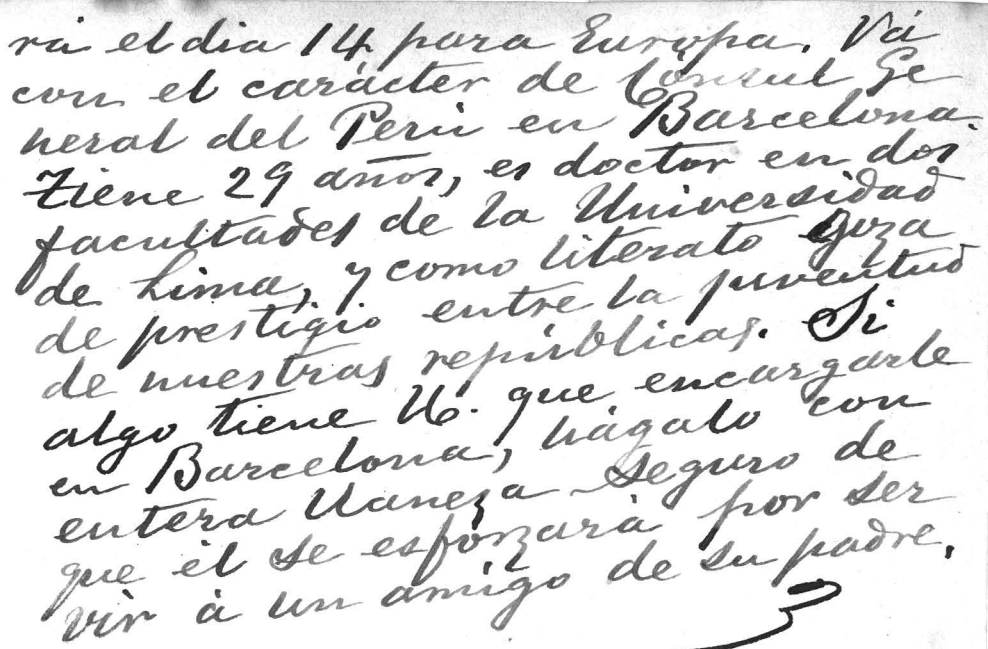 rá el dia 14 para Europa. Vá
con el carácter de Cónsul Ge
neral del Perú en Barcelona.
Tiene 29 años, es doctor en dos
facultades de la Universidad
de Lima, y como literato goza
de prestigio entre la juventud
de nuestras repúblicas. Si
algo tiene U. que encargarle
en Barcelona, hágalo con
entera llaneza seguro de
que él se esforzará por ser
vir á un amigo de su padre.